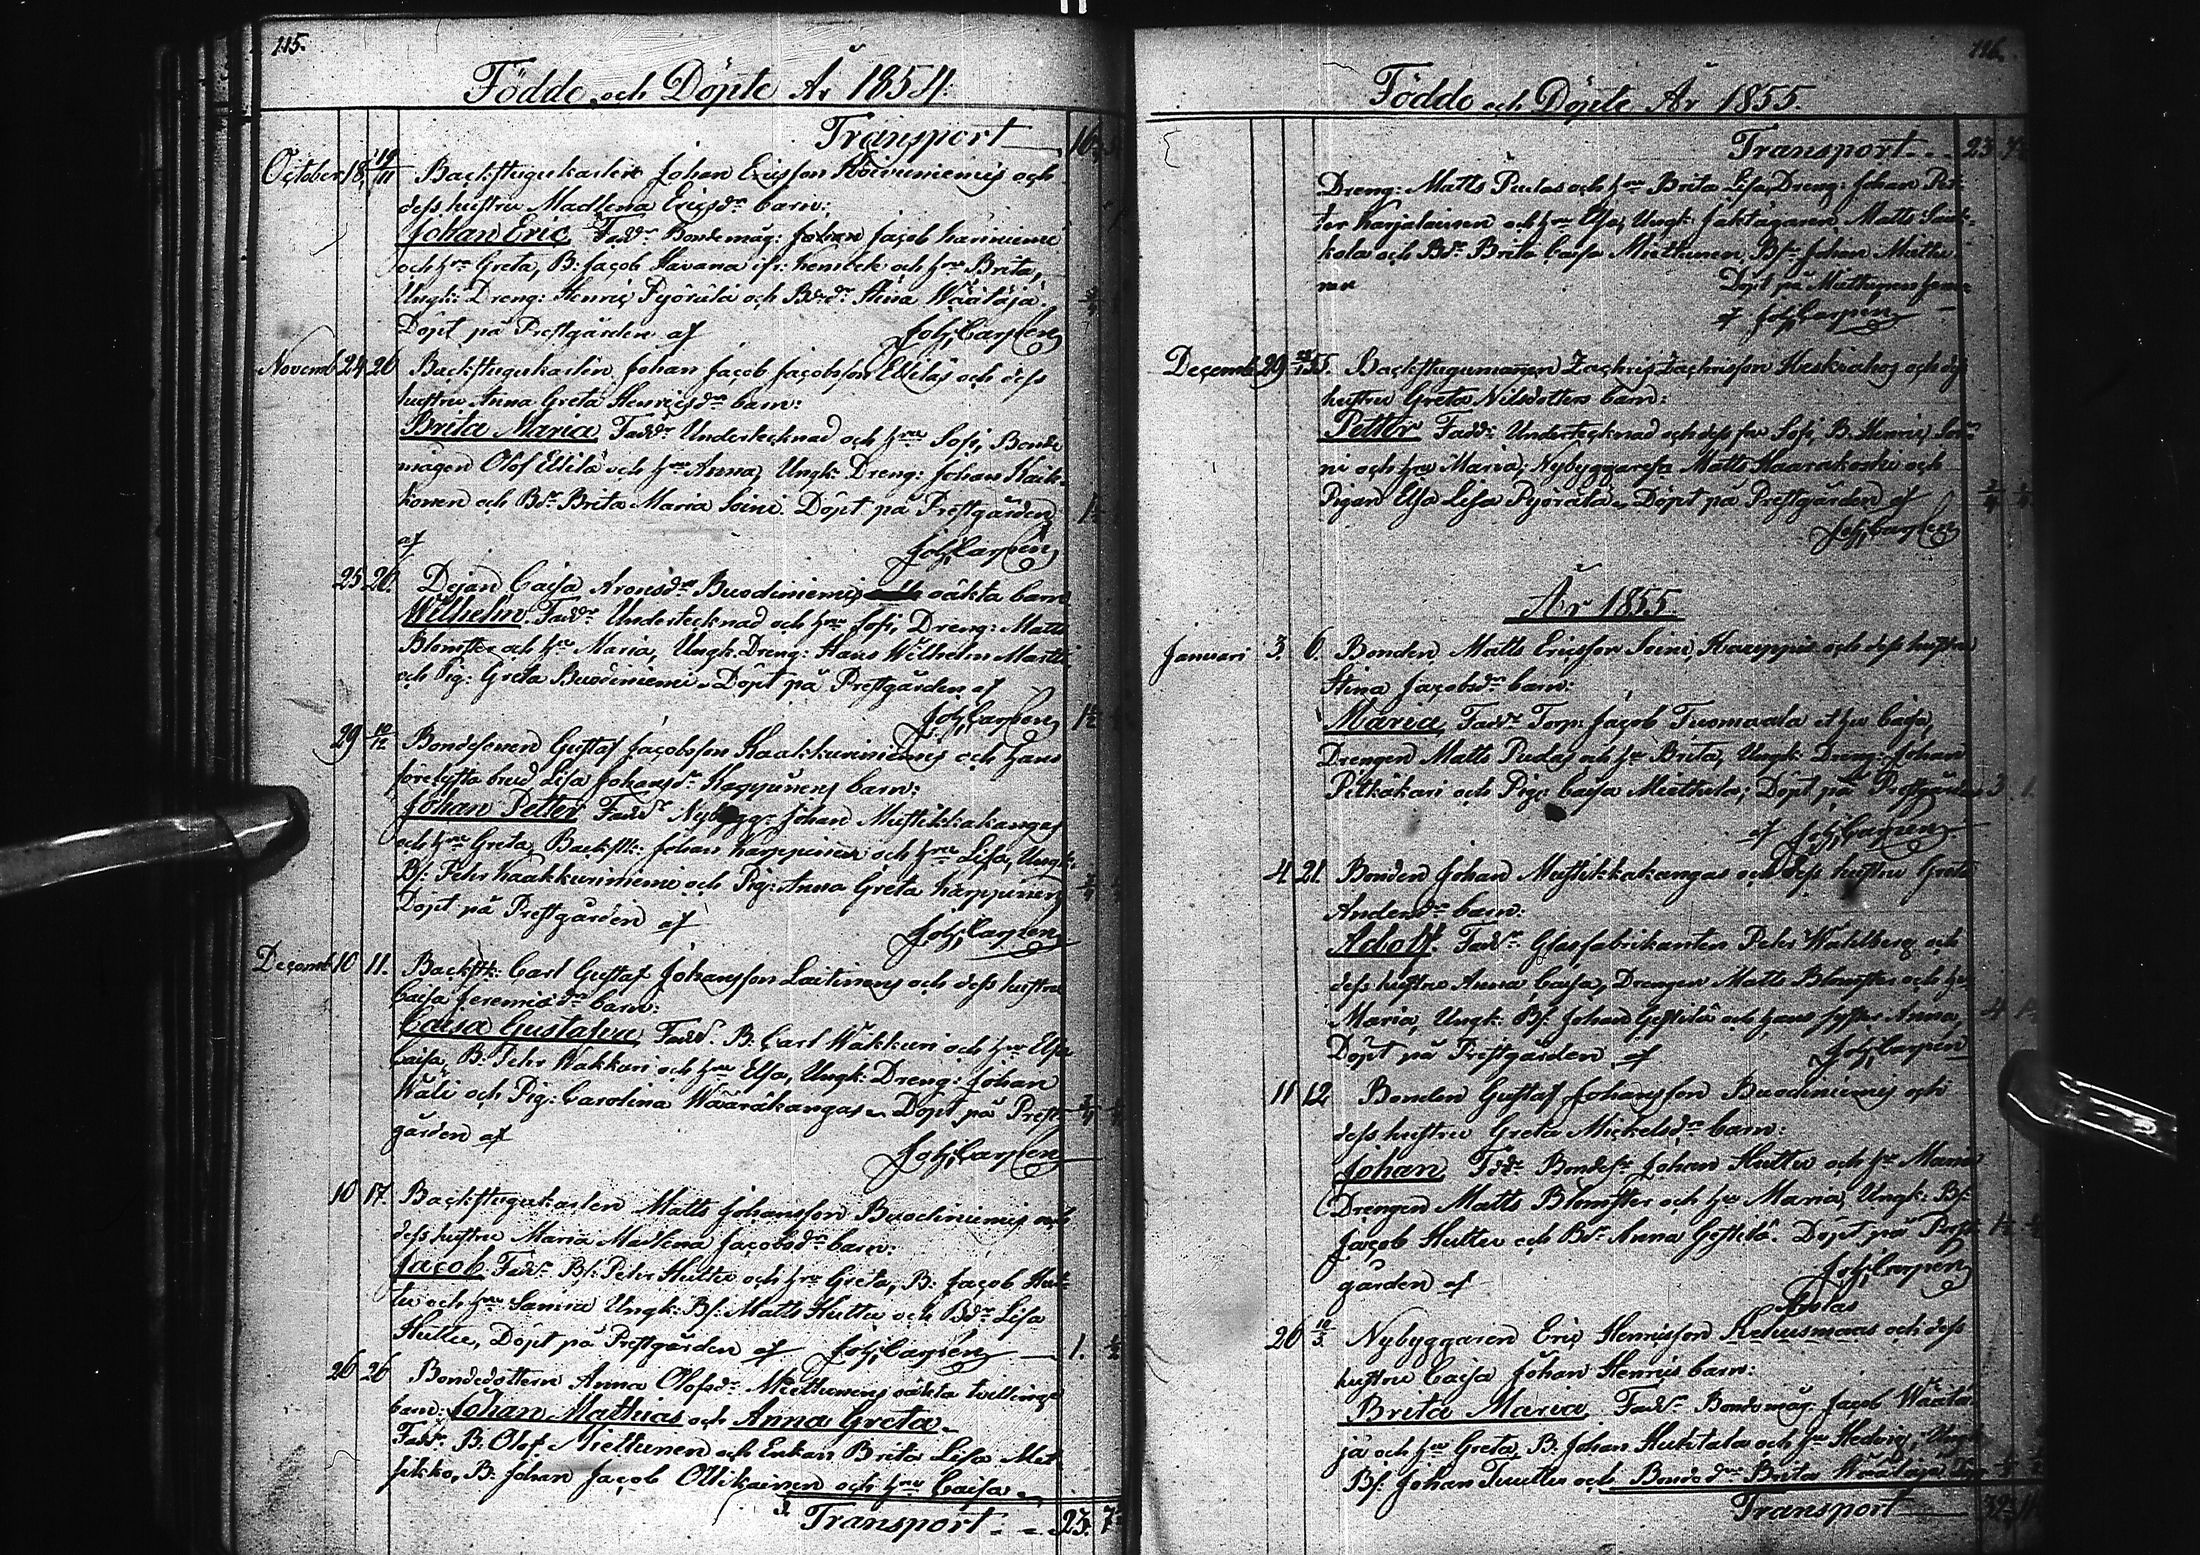 115.
Födde och Döpte År 1854.
Transport
October 18 19/11 Backstugukarlen Johan Ericsson och
dess hustru Madlena Ericsdr barn:
Johan Eric, Faddr Bondemåg: Johan Jacob
och hru Greta, B: Jacob Havana och hru Brita,
Ungk: Dreng: Henric Pyörälä och Bdr Stina Väätäjä.
Döpt på Prestgården af Joh: Carpén
Novemb 24 26 Backstugukarlen Johan Jacob Jacobsson Elliläs och dess
hustru Anna Greta Henricsdr barn:
Brita Maria, Faddr Undertecknad och hru Sofi, Bonde
mågen Olof Ellilä och hru Anna, Ungk: Dreng: Johan Haik-
konen och Bdr Brita Maria Soini. Döpt på Prestgården
af Joh: Carpén
25 26. Dejan Caisa Aronsdr Buodiniemis oäkta barn
Wilhelm. Faddr Undertecknad och hru Sofi, Dreng: Matts
Blomster och hru Maria, Ungk. Dreng: Hans Wilhelm Martti
och Pig: Greta Buodiniemi. Döpt på Prestgården af
Joh: Carpén
29 10/12 Bondesonen Gustaf Jacobsson Kaakkuriniemis och hans
förelofta brud Lisa Johansdr Karppinens barn:
Johan Petter Faddr Nybygg: Johan Mustikkakangas
och hru Greta, Backstk: Johan Karppinen och hru Lisa, Ungk:
Bs: Pehr Kaakkuriniemi och Pig: Anna Greta Karppinen
Döpt på Prestgården af Joh: Carpén
Decemb 10 11. Backstk: Carl Gustaf Johansson Laitinens och dess hustru
Caisa Jeremiædr barn:
Caisa Gustafva, Faddr B: Carl Wäkkuri och hru Elsa
Caisa, B: Pehr Wakkuri och hru Elsa, Ungk: Dreng: Johan
Wäli och Pig: Carolina Wääräkangas. Döpt på Prest-
gården af Joh: Carpén
10 17. Backstugukarlen Matts Johansson Buodiniemis och
dess hustru Maria Madlena Jacobsdr barn:
Jacob. Faddr Bs: Pehr Huttu och hru Greta, B: Jacob Hut-
tu och hru Sanna Ungk: Bs: Matts Huttu och Bdr Lisa
Huttu, Döpt på Prestgården af Joh: Carpén 1. 1/2
26 26 Bondedottern Anna Olofsdr Miettunens oäkta tvillinge
barn: Johan Mathias och Anna Greta.
Faddr B. Olof Miettunen och Enkan Brita Lisa Met-
sikko, B: Johan Jacob Ollikainen och hru Caisa
Transport 23. 7
116.
Födde och Döpte År 1855.
Transport 23
Dreng: Matts Pudas och hru Brita Lisa, Dreng: Johan Pet-
ter Karjalainen och hru Elsa, Ungk:
kola och Bdr Brita Caisa Miettunen, Bs: Johan Miettu
nen Döpt på Miettunen
af Joh: Carpén
Decemb 29 55. Backstugumannen Zachris Zachrisson Keskiahos och dess
hustru Greta Nilsdotters barn:
Petter Faddr Undertecknad och dess fru Sofi, B. Henric Soi
ni och hru Maria, Nybyggaresn Matts Haarakoski och
Pigan Elsa Lisa Pyörälä. Döpt på Prestgården af
Joh: Carpén
År 1855.
Januari 3. 6. Bonden Matts Ericsson Soini, Karppis och dess hustru
Stina Jacobsdr barn:
Maria, Faddr Torp: Jacob Tuomaala et hru Caisa,
Drengen Matts Pudas och hru Brita, Ungk: Dreng: Johan
Pitkäkari och Pig: Caisa Miettula; Döpt på Prestgården 3. 1.
af Joh: Carpén
4. 21. Bonden Johan Mustikkakangas och dess hustru Greta
Andersdr barn:
Adolf. Faddr Glasfabrikanten Pehr Wahlberg och
dess hustru Anna Caisa, Drengen Matts Blomster och hru
Maria, Ungk: Bs: Johan Gestilä och hans syster Anna,
Döpt på Prestgården af Joh: Carpén
11 12 Bonden Gustaf Johansson Buodiniemis och
dess hustru Greta Mickelsdr barn:
Johan, Fddr Bondesn Johan Huttu och hru Maria
Drengen Matts Blomster och hru Maria, Ungk: Bs:
Jacob Huttu och Bdr Anna Gestilä. Döpt på Prest
gården af Joh: Carpén
26 Nybyggaren Eric Henricsson Rehusmaas och dess
hustru Caisa Johan Henrics barn:
Brita Maria, Faddr Bondemåg Jacob Väätä
jä och hru Greta, B. Johan Huhtala och hru Hedvig, Ungk
Bs: Johan Tuuttu och Bondedr Brita Väätäjä
Transport